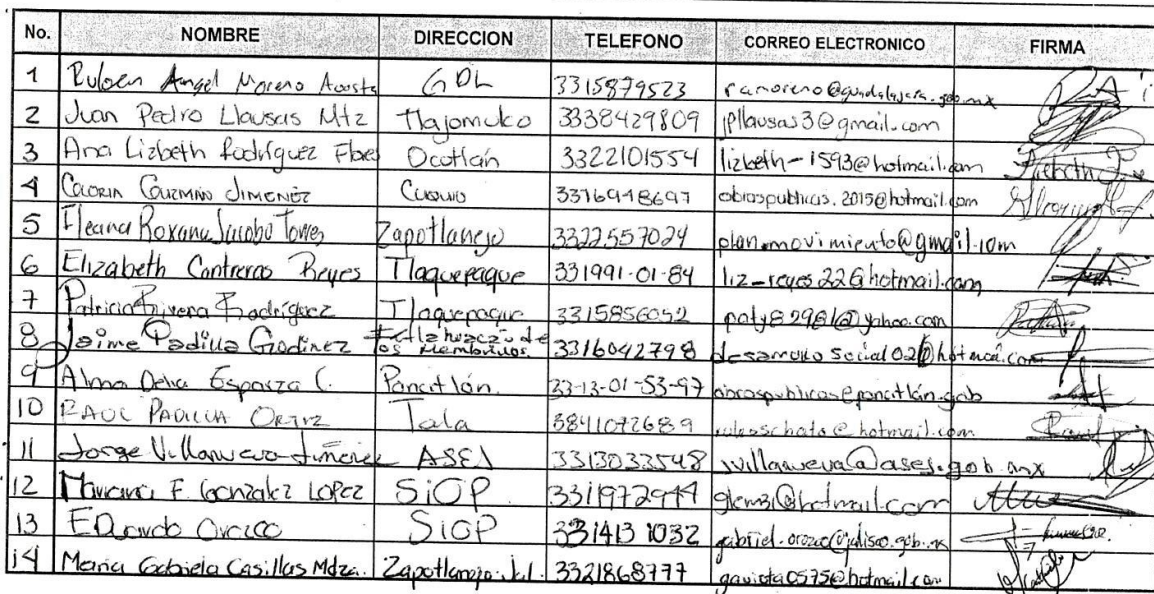 No. NOMBRE DIRECCION TELEFONO CORREO ELECTRONICO FIRMA
1 Ruben Angel Moreno Acosta GDL 3315879523 ramoreno@guadalajara.gob.mx
2 Juan Pedro Llausas Mtz Tlajomulco 3338429809 jpllausas3@gmail.com
3 Ana Lizbeth Rodríguez Flores Ocotlán 3322101554 lizbeth-1593@hotmail.com
4 GLORIA GUZMÁN JIMENÉZ CUQUIO 3316948697 obraspublicas.2015@hotmail.com
5 Ileana Roxana Jacobo Torres Zapotlanejo 3322557024 plan.movimiento@gmail.com
6 Elizabeth Contreras Reyes Tlaquepaque 331991-01-84 liz-reyes22@hotmail.com
7 Patricia Rivera Rodríguez Tlaquepaque 3315856052 paty82981@yahoo.com
8 Jaime Padilla Godinez Ixtlahuacán de los Membrillos 3316042798 desarrollo social02@hotmail.com
9 Alma Delia Esparza C. Poncitlán. 33-13-01-53-97 obraspublicas@poncitlán.gob
10 RAUL PADILLA ORTIZ Tala 3841072689 @hotmail.com
11 Jorge Villanueva Jiménez ASEJ 3313033548 jvillanueva@asej.gob.mx
12 Mariana F. Gonzalez LOPEZ SIOP. 3311972944 glem3@hotmail.com
13 EDuardo Orozco SIOP 331413 1032 gabriel.orozco@jalisco.gob.mx
14 Maria Gabriela Casillas Mdza. Zapotlanejo. Jal. 3321868777 gaviota0575@hotmail.com